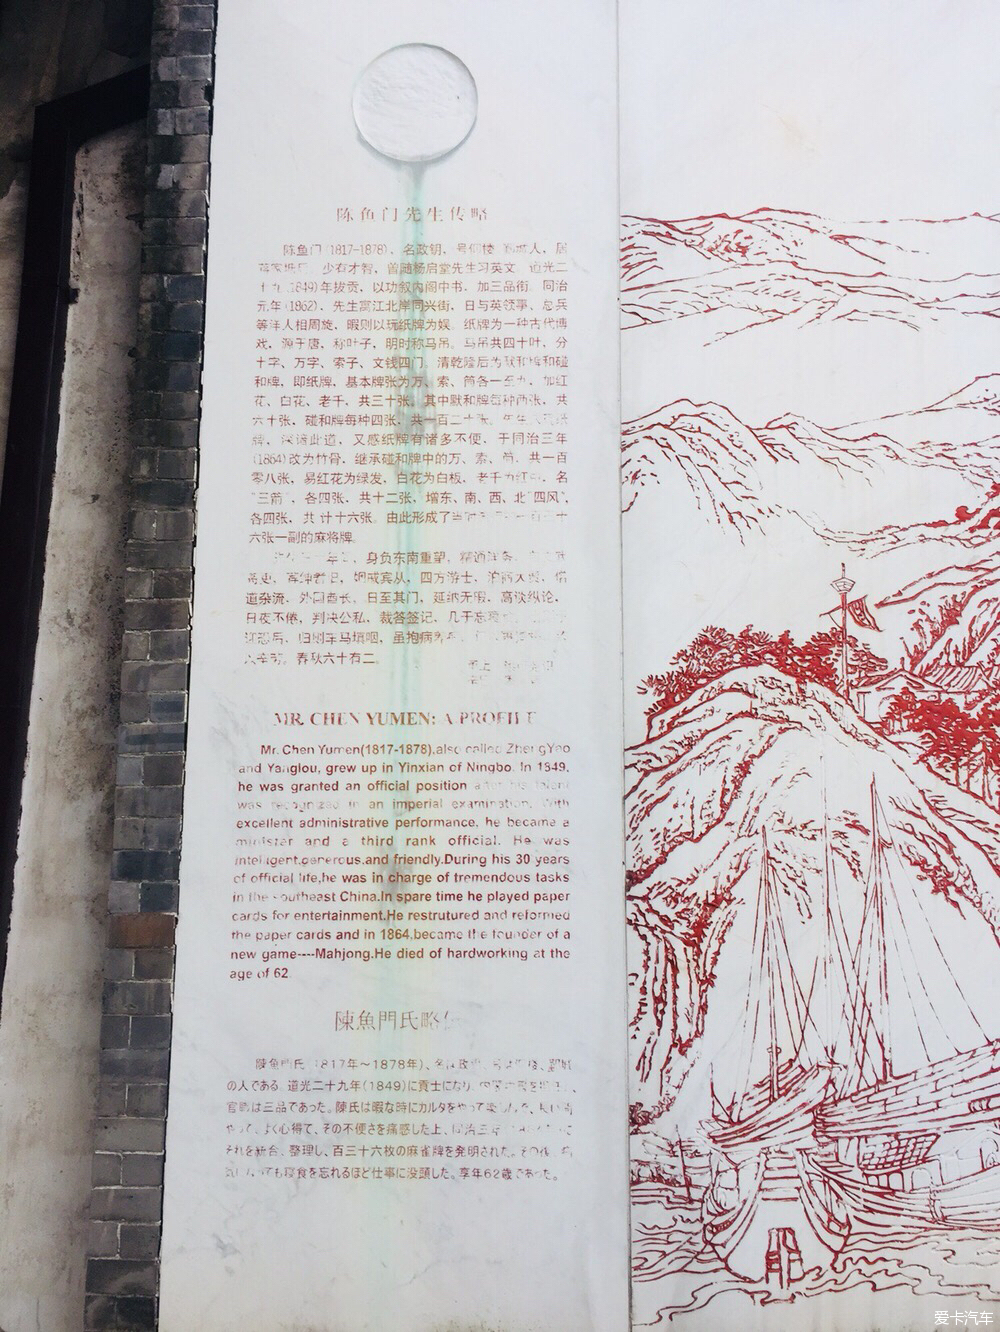 陈鱼门先生传略
陈鱼门(1817-1878)，名政钥，号仰楼 人，居
少有才智，曾随杨启堂先生习英文 道光二
(1849)年拔贡，以功叙内阁中书，加三品衔。同治
元年(1862)，先生寓江北岸同兴街，日与英领事、总兵
等洋人相周旋，暇则以玩纸牌为娱。纸牌为一种古代博
戏，源于唐，称叶子，明时称马吊。马吊共四十叶，分
十字、万字、索子、文钱四门。清乾隆后为默和牌和碰
和牌，即纸牌，基本牌张为万、索、筒各一至九，加红
花、白花、老千，共三十张。其中默和牌每种两张，共
六十张，碰和牌每种四张，共一百二十张。
牌，深谙此道，又感纸牌有诸多不便，于同治三年
(1864)改为竹骨，继承碰和牌中的万、索、筒，共一百
零八张，易红花为绿发，白花为白板，老千为红中，名
“三箭”，各四张，共十二张，增东、南、西、北“四风”，
各四张，共计十六张。由此形成了
六张一副的麻将牌。
身负东南重望，精通洋务
四方游士，
道杂流，外国酋长。日至其门，延纳无暇，高谈纵论，
日夜不倦，判决公私，裁答签记，几于忘
车马填咽，虽抱病
春秋六十有二。
MR. CHEN YUMEN: A PROFILE
Mr. Chen Yumen(1817-1878),also called ZhengYao
and Yanglou, grew up in Yinxian of Ningbo. In 1849,
he was granted an official position after his talent
was recognized in an imperial examination. With
excellent administrative performance, he became a
minister and a third rank official. He was
intelligent,generous,and friendly.During his 30 years
of official life,he was in charge of tremendous tasks
in the southeast China.In spare time he played paper
cards for entertainment.He restrutured and reformed
the paper cards and in 1864,became the founder of a
new game----Mahjong.He died of hardworking at the
age of 62.
陳魚門氏略
陳魚門氏（1817年～1878年）、名は政
の人である。道光二十九年(1849)に貢士になり、
官職は三品であった。陳氏は暇な時にカルタをやって楽しんで、
よく心得て、その不便さを痛感した上、同治三年
それを統合、整理し、百三十六枚の麻雀牌を発明された。その後、
ても寝食を忘れるほど仕事に没頭した。享年62歳であった。
爱卡汽车